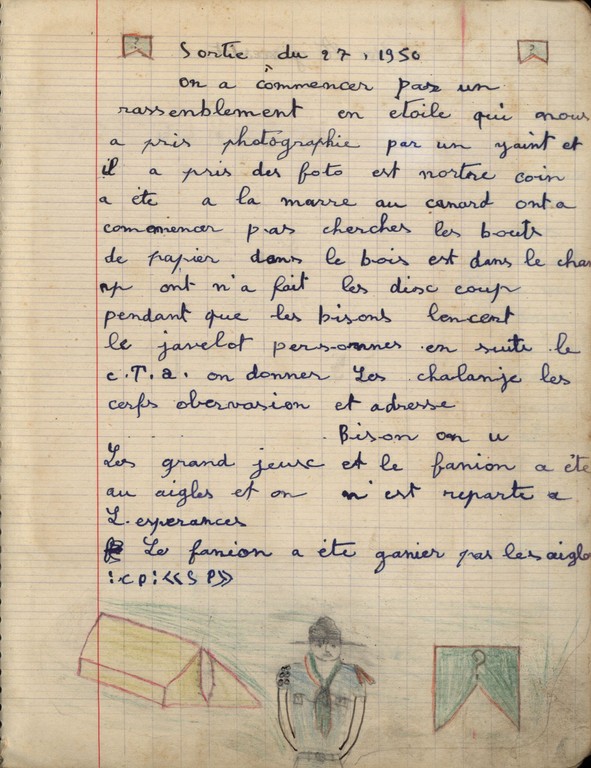 Sortie du 27, 1950
on a commencer par un
rassenblement en etoile qui nous
a pris photographie par un yaint et
il a pris des foto est nortre coin
a éte a la marre au canard ont a
commencer pas cherches les bouts
de papier dans le bois est dans le cha
mp ont n'a fait les disc coup
pendant que les bisons lencent
le javelot personnes en suite le
c.T.a. on donner Les chalanje les
cerfs obervasion et adresse
Bison on u
Les grand jeusc et le fanion a éte
au aigles et on n'est reparte a
L.esperances
Le fanion a éte ganier par les aigle
:cp:<<SP>>
?
?
?